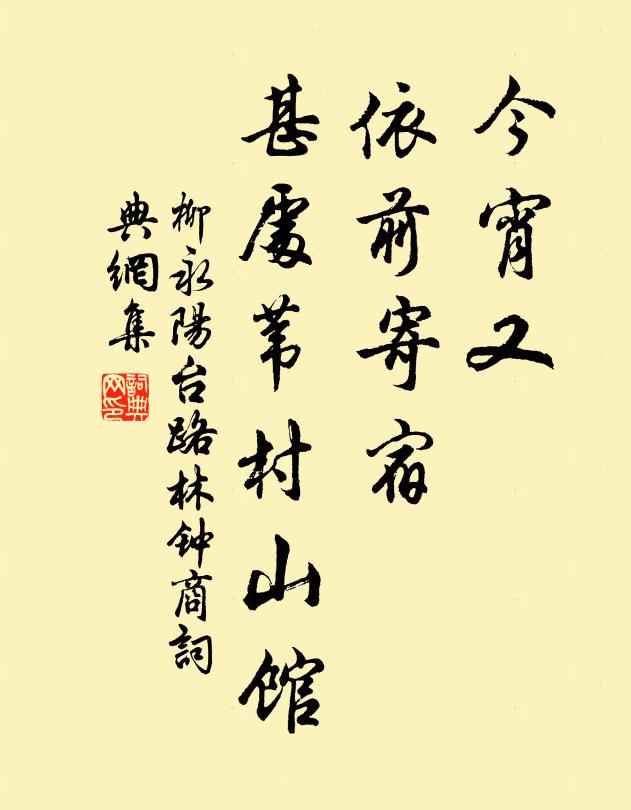 今宵又
依前寄宿
甚處葦村山館
柳永陽台路林钟商詞
典網集
詞典
网印